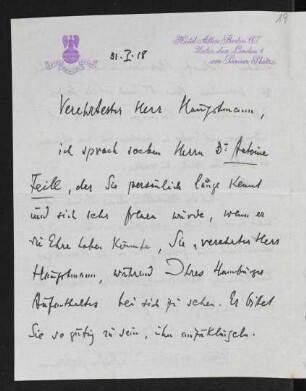 19
Hotel Adlon Berlin W.
Unter den Linden 1
am Pariser Platz
31. I. 18
Verehrtester Herr Hauptmann,
ich sprach soeben Herrn Dr. Antoine
Feill, der Sie persönlich lange kennt
und sich sehr freuen würde, wenn er
die Ehre haben könnte, Sie, verehrter Herr
Hauptmann, während Ihres Hamburger
Aufenthaltes bei sich zu sehen. Er bittet
Sie so gütig zu sein, ihn anzuklingeln.